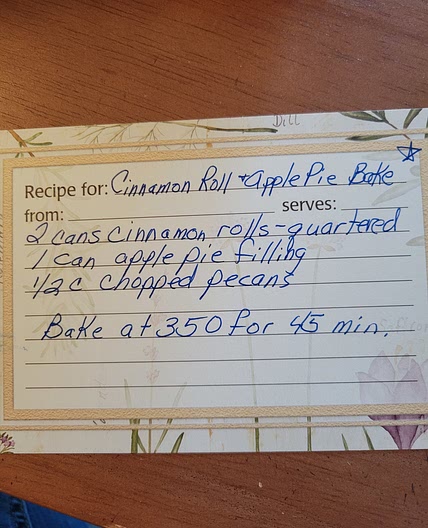 Dill
Recipe for: Cinnamon Roll + Apple Pie Bake
from: serves:
2 cans cinnamon rolls - quartered
1 can apple pie filling
1/2 c chopped pecans
Bake at 350 for 45 min.